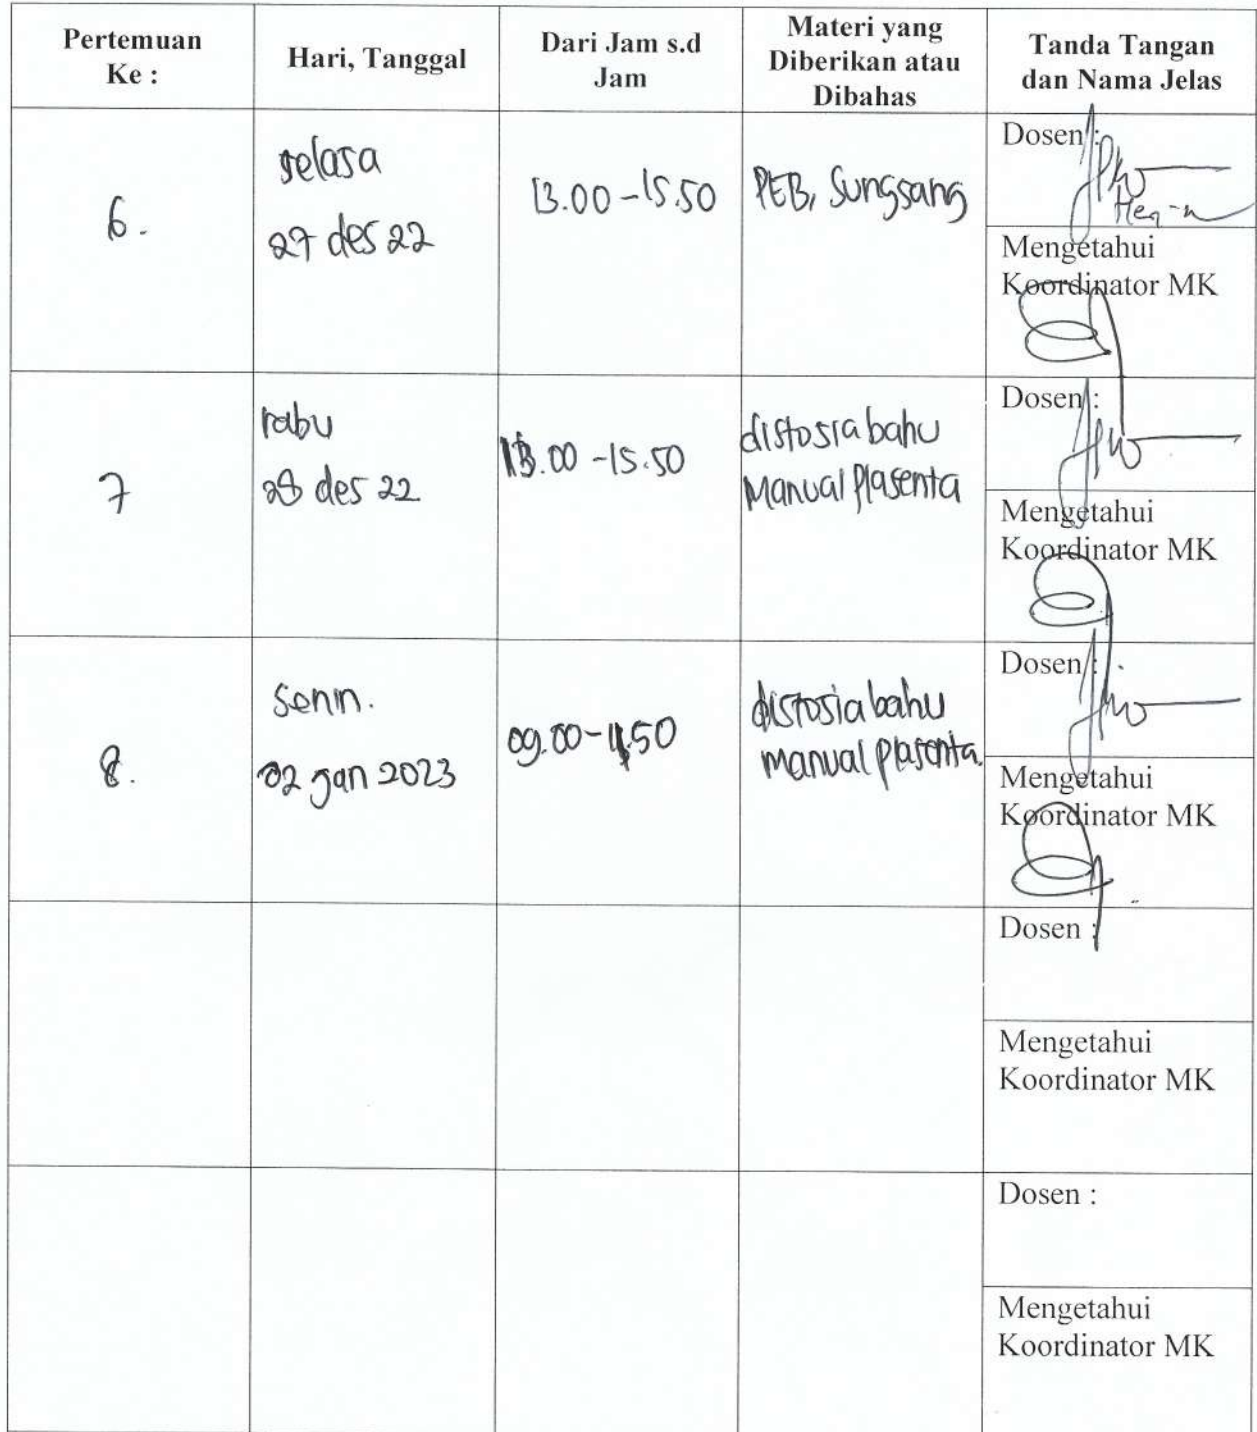 Pertemuan
Ke :
Hari, Tanggal
Dari Jam s.d
Jam
Materi yang
Diberikan atau
Dibahas
Tanda Tangan
dan Nama Jelas
6.
selasa
27 des 22
13.00 - 15.50
PEB, Sungsang
Dosen :
Mengetahui
Koordinator MK
7
rabu
28 des 22
13.00 - 15.50
distosia bahu
Manual Plasenta
Dosen :
Mengetahui
Koordinator MK
8.
Senin.
02 jan 2023
09.00 - 11.50
distosia bahu
manual plasenta.
Dosen :
Mengetahui
Koordinator MK
Dosen :
Mengetahui
Koordinator MK
Dosen :
Mengetahui
Koordinator MK